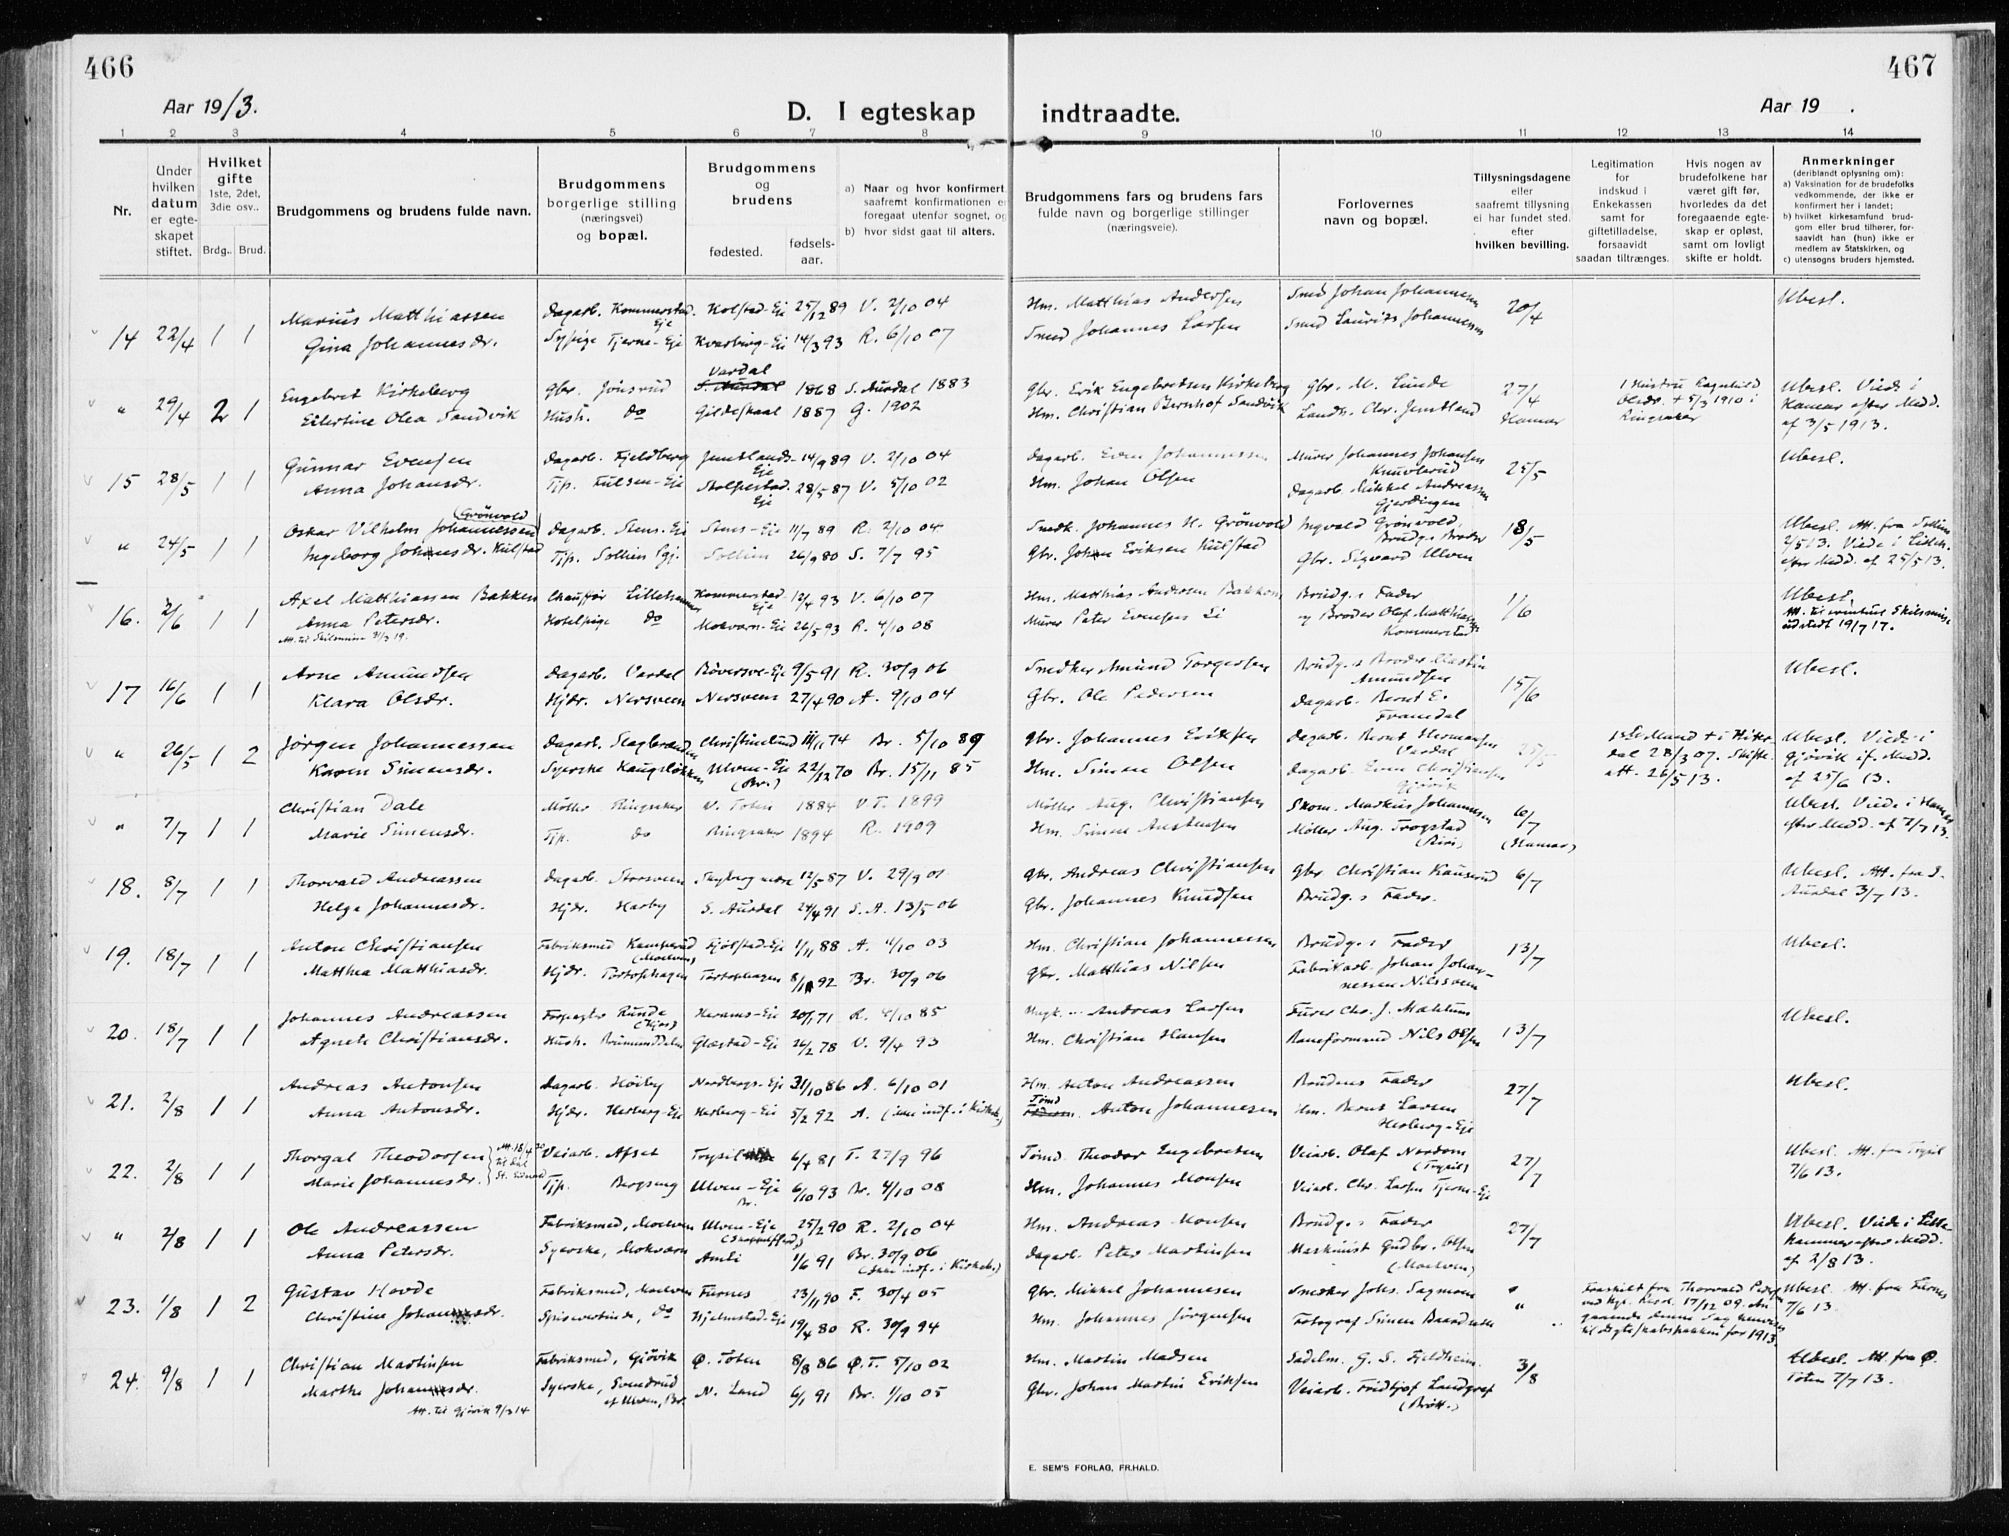 466
467
Aar 1913.
D. I egteskap indtraadte.
Aar 19 .
1 2 3 4 5 6 7 8 9 10 11 12 13 14
Nr.
Under
hvilken
datum
er egte-
skapet
stiftet.
Hvilket
gifte
1ste, 2det,
3die osv..
Brdg.. Brud.
Brudgommens og brudens fulde navn.
Brudgommens
borgerlige stilling
(næringsvei)
og bopæl.
Brudgommens
og
brudens
fødested.
fødsels-
aar.
a) Naar og hvor konfirmert,
saafremt konfirmationen er
foregaat utenfor sognet, og
b) hvor sidst gaat til alters.
Brudgommens fars og brudens fars
fulde navn og borgerlige stillinger
(næringsveie).
Forlovernes
navn og bopæl.
Tillysningsdagene
eller
saafremt tillysning
ei har fundet sted.
efter
hvilken bevilling.
Legitimation
for
indskud i
Enkekassen
samt for
giftetilladelse,
forsaavidt
saadan tiltrænges.
Hvis nogen av
brudefolkene har
været gift før,
hvorledes da det
foregaaende egte-
skap er opløst,
samt om lovligt
skifte er holdt.
Anmerkninger
(deriblandt oplysning om):
a) Vaksination for de brudefolks
vedkommende, der ikke er
konfirmert her i landet;
b) hvilket kirkesamfund brud-
gom eller brud tilhører, for-
saavidt han (hun) ikke er
medlem av Statskirken, og
c) utensogns bruders hjemsted.
14 22/4 1 1 Marius Matthiassen Dagarb. Kommerstad Eje Kolstad-Eie 25/12 89 V. 2/10 04 Hm. Matthias Andersen Smed Johan Johannesen 20/4 Ubesl.
Gina Johannesdr. Sypige Tjerne-Eje Kvarberg-Eie 14/3 93 R. 6/10 07 Smed Johannes Larsen Smed Laurits Johannessen
" 29/4 2 1 Engebret Kirkeberg Gbr. Jönsrud Vardal 1868 S. Aurdal 1883 Gbr. Erik Engebretsen Kirkeberg Gbr. M. Lunde 27/4 Hamar 1 Hustru Ragnhild Olsdr. + 5/3 1910 i Ringsaker Ubesl. Viede i Hamar efter Medd. af 3/5 1913.
Eilertine Olea Sandvik Hush. do Gildeskaal 1887 G. 1902 Hm. Christian Bernhof Sandvik Landh. Chr. Jemtland
15 28/5 1 1 Gunnar Evensen Dagarb. Fjeldberg Jemtlands-Eje 14/9 89 V. 2/10 04 Dagarb. Even Johannessen Murer Johannes Johansen Knuvlerud 25/5 Ubesl.
Anna Johansdr. Tjp. Fulsen-Eje Stolpestad-Eje 28/5 87 V. 5/10 02 Hm. Johan Olsen Dagarb. Mikkel Andreassen Gjerdingen
" 24/5 1 1 Oskar Vilhelm Johannessen (Grönvold) Dagarb. Stens-Eie Stens-Eje 11/7 89 R. 2/10 04 Snedk. Johannes H. Grönvold Ingvald Grönvold, Brudg.s Broder 18/5 Ubesl. Att. fra Sollien 2/5 13. Viede i Lilleh. efter Medd. af 25/5 13.
Ingeborg Johansdr. Kulstad Tjp. Sollien Pgj. Sollien 26/9 80 S. 7/7 95 Gbr. Johan Eriksen Kulstad Gbr. Sigvard Ulven
16. 2/6 1 1 Axel Matthiassen Bakken Chauffør Lillehammer Kommerstad-Eje 12/4 93 V. 6/10 07 Hm. Matthias Andersen Bakken Brudg.s Fader 1/6 Ubesl.
Anna Petersdr. Hotelpige do Mokvarn-Eie 26/5 93 R. 4/10 08 Murer Peter Evensen Ei og Broder Olaf Matthiassen Kommerstad Att. til eventuel Skilsmisse udstedt 19/7 17.
Att. til Skilsmisse 31/3 19.
17 16/6 1 1 Arne Amundsen Dagarb. Vardal Böversve-Eje 9/5 91 R. 30/9 06 Snedker Amund Torgersen Brudg.s Broder Martin Amundsen 15/6 Ubesl.
Klara Olsdr. Hjdr. Nersveen Nersveen 27/4 90 A. 9/10 04 Gbr. Ole Pedersen Dagarb. Bernt E. Framdal
" 26/5 1 2 Jörgen Johannessen Dagarb. Slagbrænden Christinelund 11/11 74 Br. 5/10 89 Gbr. Johannes Eriksen Dagarb. Bernt Hermansen Vardal 25/5 1ste Mand + i Hitterdal 28/3 07. Skifteatt. 26/5 13. Ubesl. Viede i Gjøvik if. Medd. af 25/6 13.
Karen Simensdr. Syerske Haugsløkken Ulven-Eje (Br.) 22/12 70 Br. 15/11 85 Hm. Simen Olsen Dagarb. Even Christiansen Gjövik
" 7/7 1 1 Christian Dale Møller Ringsaker V. Toten 1884 V T. 1899 Møller Aug. Christiansen Skom. Markus Johannesen 6/7 (Hamar) Ubesl. Viede i Hamar efter Medd. af 7/7 13.
Marie Simensdr. Tjp. do Ringsaker 1894 R. 1909 Hm. Simen Anstensen Møller Aug. Trogstad (Biri)
18. 8/7 1 1 Thorvald Andreassen Dagarb. Storsveen Skyberg nedre 12/5 87 V. 29/9 01 Gbr. Andreas Christiansen Gbr Christian Kauserud 6/7 Ubesl. Att. fra S. Aurdal 3/7 13.
Helga Johannesdr. Hjdr. Harby S. Aurdal 24/4 91 S. A. 13/5 06 Gbr. Johannes Knudsen Brudg.s Fader.
19. 18/7 1 1 Anton Christiansen Fabriksmed Kamperud (Moelven) Fjölstad-Eje 1/11 88 A. 4/10 03 Hm. Christian Johannessen Brudg.s Fader 13/7 Ubesl.
Matthea Matthiasdr. Hjdr. Tortophagen Tortophagen 8/11 92 Br. 30/9 06 Gbr. Matthias Nilsen Fabrikarb. Johan Johannessen Nilssveen
20. 18/7 1 1 Johannes Andreassen Forpagter Runde Herams-Eie 20/1 71 R. 4/10 85 Andreas Larsen Furer Chr. J. Mæhlum 13/7 Ubesl.
Agnete Christiansdr. Hush. Brumunddalen Glæstad-Eje 26/2 78 V. 9/4 93 Hm. Christian Hansen Baneformand Nils Olsen
21. 2/8 1 1 Andreas Antonsen Dagarb. Höiby Nordbergs-Eje 31/10 86 A. 6/10 01 Hm. Anton Andreassen Brudens Fader 27/7 Ubesl.
Anna Antonsdr. Hjdr. Hesberg-Eje Hesberg-Eie 5/2 92 A. (ikke indf. i Kirkeb.) Tömd. Anton Johannesen Hm. Bernt Larsen Hesberg-Eje
22. 2/8 1 1 Thorgal Theodorsen Veiarb. Afset Trysil 6/4 81 T. 27/9 96 Tömd. Theodor Engebretsen Veiarb. Olaf Nordom (Trysil) 27/7 Ubesl. Att. fra Trysil 7/6 13.
Marie Johannesdr. Tjp. Bergseng Ulven-Eje Br. 6/10 93 Br. 4/10 08 Hm. Johannes Monsen Veiarb. Chr. Larsen Tjerne-Eje
" 2/8 1 1 Ole Andreassen Fabriksmed, Moelven Ulven-Eje 25/2 90 R. 2/10 04 Hm. Andreas Monsen Brudg.s Fader 27/7 Ubesl. Viede i Lillehammer efter Medd. af 2/8 13.
Anna Petersdr. Syerske, Mokværn Amli 1/6 91 Br. 30/9 06 (ikke indf. i Kirkeb.) Dagarb. Peter Martinsen Maskinist Gudbr. Olsen (Moelven)
23. 1/8 1 2 Gustav Hovde Fabriksmed, Moelven Furnes 23/11 90 F. 30/4 05 Gbr. Mikkel Johannesen Snedker Johs. Sagmoen " Fraskilt fra Thorvald Pedersen ved Kgl. Resol. 17/12 09. Angaaende denne Sag henvises til Ægteskabspakken for 1913. Ubesl. Att. fra Furnes 7/6 13.
Christine Johansdr. Spisevertinde, do Hjelmstad-Eje 19/4 80 R. 30/9 94 Hm. Johannes Jörgensen Fotograf Simen Brændsen "
24. 9/8 1 1 Christian Martinsen Fabriksmed, Gjövik Ø. Toten 8/8 86 Ø.T. 5/10 02 Hm. Martin Madsen Sadelm. G. S. Fjeldheim. 3/8 Ubesl. Att. fra Ø. Toten 7/7 13.
Marthe Johansdr. Syerske, Svendrud af Ulven, Br. N. Land 6/1 91 Br. 1/10 05 Gbr. Johan Martin Eriksen Veiarb. Fridtjof Landgraf (Brött.)
Att. til Gjövik 9/3 14
E. SEM'S FORLAG, FR.HALD.